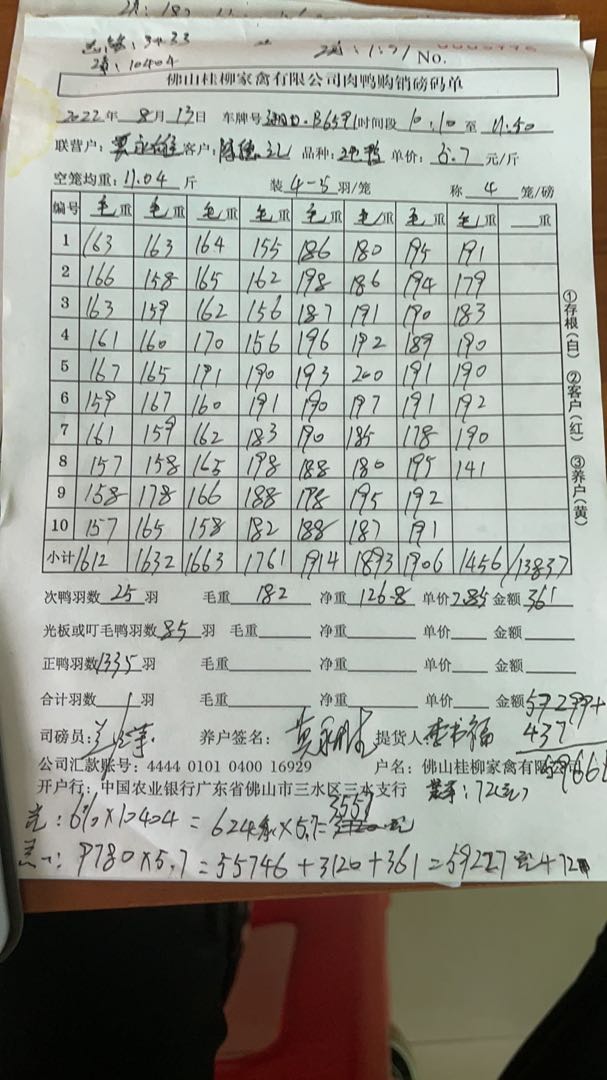 No.
佛山桂柳家禽有限公司肉鸭购销磅码单
2022年 8月 13日 车牌号 B6591 时间段 10:10 至 11:50
联营户: 客户: 品种: 单价: 5.7 元/斤
空笼均重: 11.04 斤 装 4-5 羽/笼 称 4 笼/磅
编号 毛重 毛重 毛重 毛重 毛重 毛重 毛重 毛重 重
1 163 163 164 155 186 180 195 191
2 166 158 165 162 198 186 194 179
3 163 159 162 156 187 191 190 183
4 161 160 170 156 196 192 189 190
5 167 165 191 190 193 200 191 190
6 159 167 160 191 190 197 191 192
7 161 159 162 183 190 185 178 190
8 157 158 165 198 188 180 195 141
9 158 178 166 188 198 195 192
10 157 165 158 182 188 187 191
小计 1612 1632 1663 1761 1914 1893 1906 1456 13837
①存根(白) ②客户(红) ③养户(黄)
次鸭羽数 25 羽 毛重 182 净重 126.8 单价 2.85 金额 361
光板或叮毛鸭羽数 85 羽 毛重 净重 单价 金额
正鸭羽数 1335 羽 毛重 净重 单价 金额
合计羽数 羽 毛重 净重 单价 金额 57299+
437
司磅员: 养户签名: 提货人:
公司汇款账号: 4444 0101 0400 16929 户名: 佛山桂柳家禽有限公司
开户行: 中国农业银行广东省佛山市三水区三水支行
3557
: 6% × 10404 = 624 × 5.7 =
: 9780 × 5.7 = 55746 + 3120 + 361 = 59227